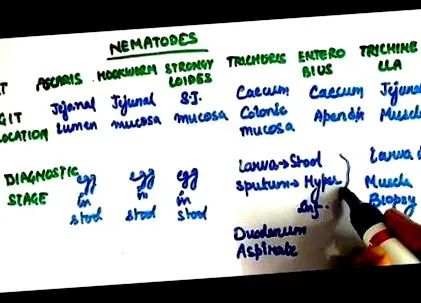 NEMATODES
T ASCARIS HOOKWORM STRONGY LOIDES TRICHURIS ENTERO BIUS TRICHINE LLA
GIT LOCATION Jejunal Lumen Jejunal mucosa S.I. mucosa Caecum Colonic mucosa Caecum Apendix Jejuna Muscle
DIAGNOSTIC STAGE egg in stool egg in stool egg in stool Larva→Stool Sputum→Hyper Inf.. Larva Muscle Biopsy
Duodenum
Aspirate